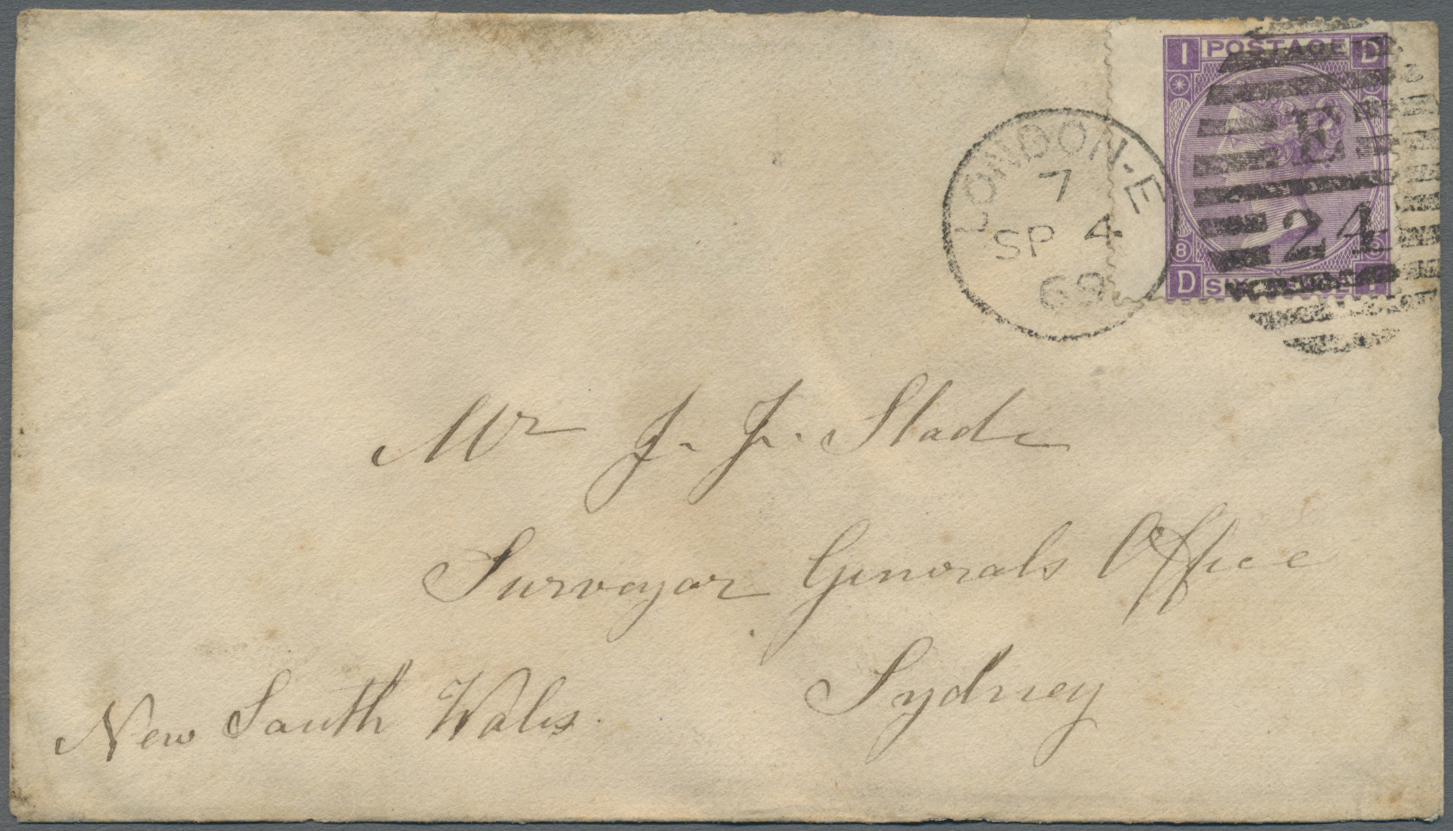 I POSTAGE D
LONDON-E
7
SP 4
69
E
24
8
D SIX PENCE I
Mr J. J. Slade
Surveyor Generals Office
Sydney
New South Wales.